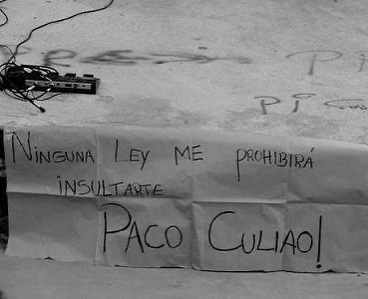 NINGUNA LEY ME PROHIBIRÁ
INSULTARTE
PACO CULIAO!